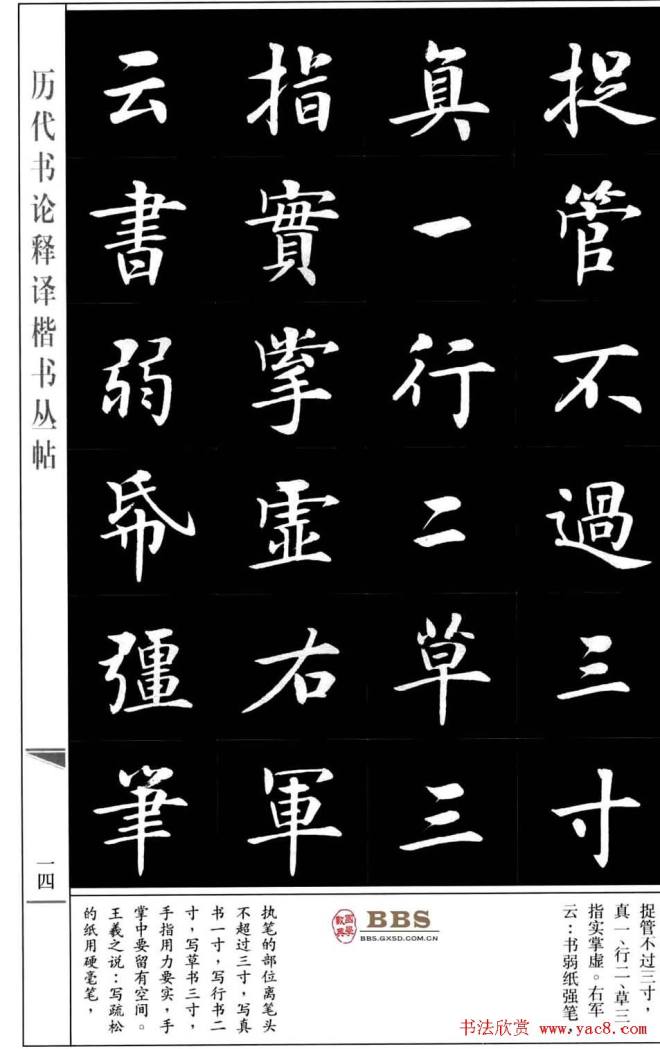 捉管不過三寸
真一行二草三
指實掌虛右軍
云書弱帋彊筆
历代书论释译楷书丛帖
一四
捉管不过三寸，
真一、行二、草三，
指实掌虚。右军
云：书弱纸强笔，
BBS
BBS.GXSD.COM.CN
执笔的部位离笔头
不超过三寸，写真
书一寸，写行书二
寸，写草书三寸，
手指用力要实，手
掌中要留有空间。
王羲之说：写疏松
的纸用硬毫笔，
书法欣赏 www.yac8.com